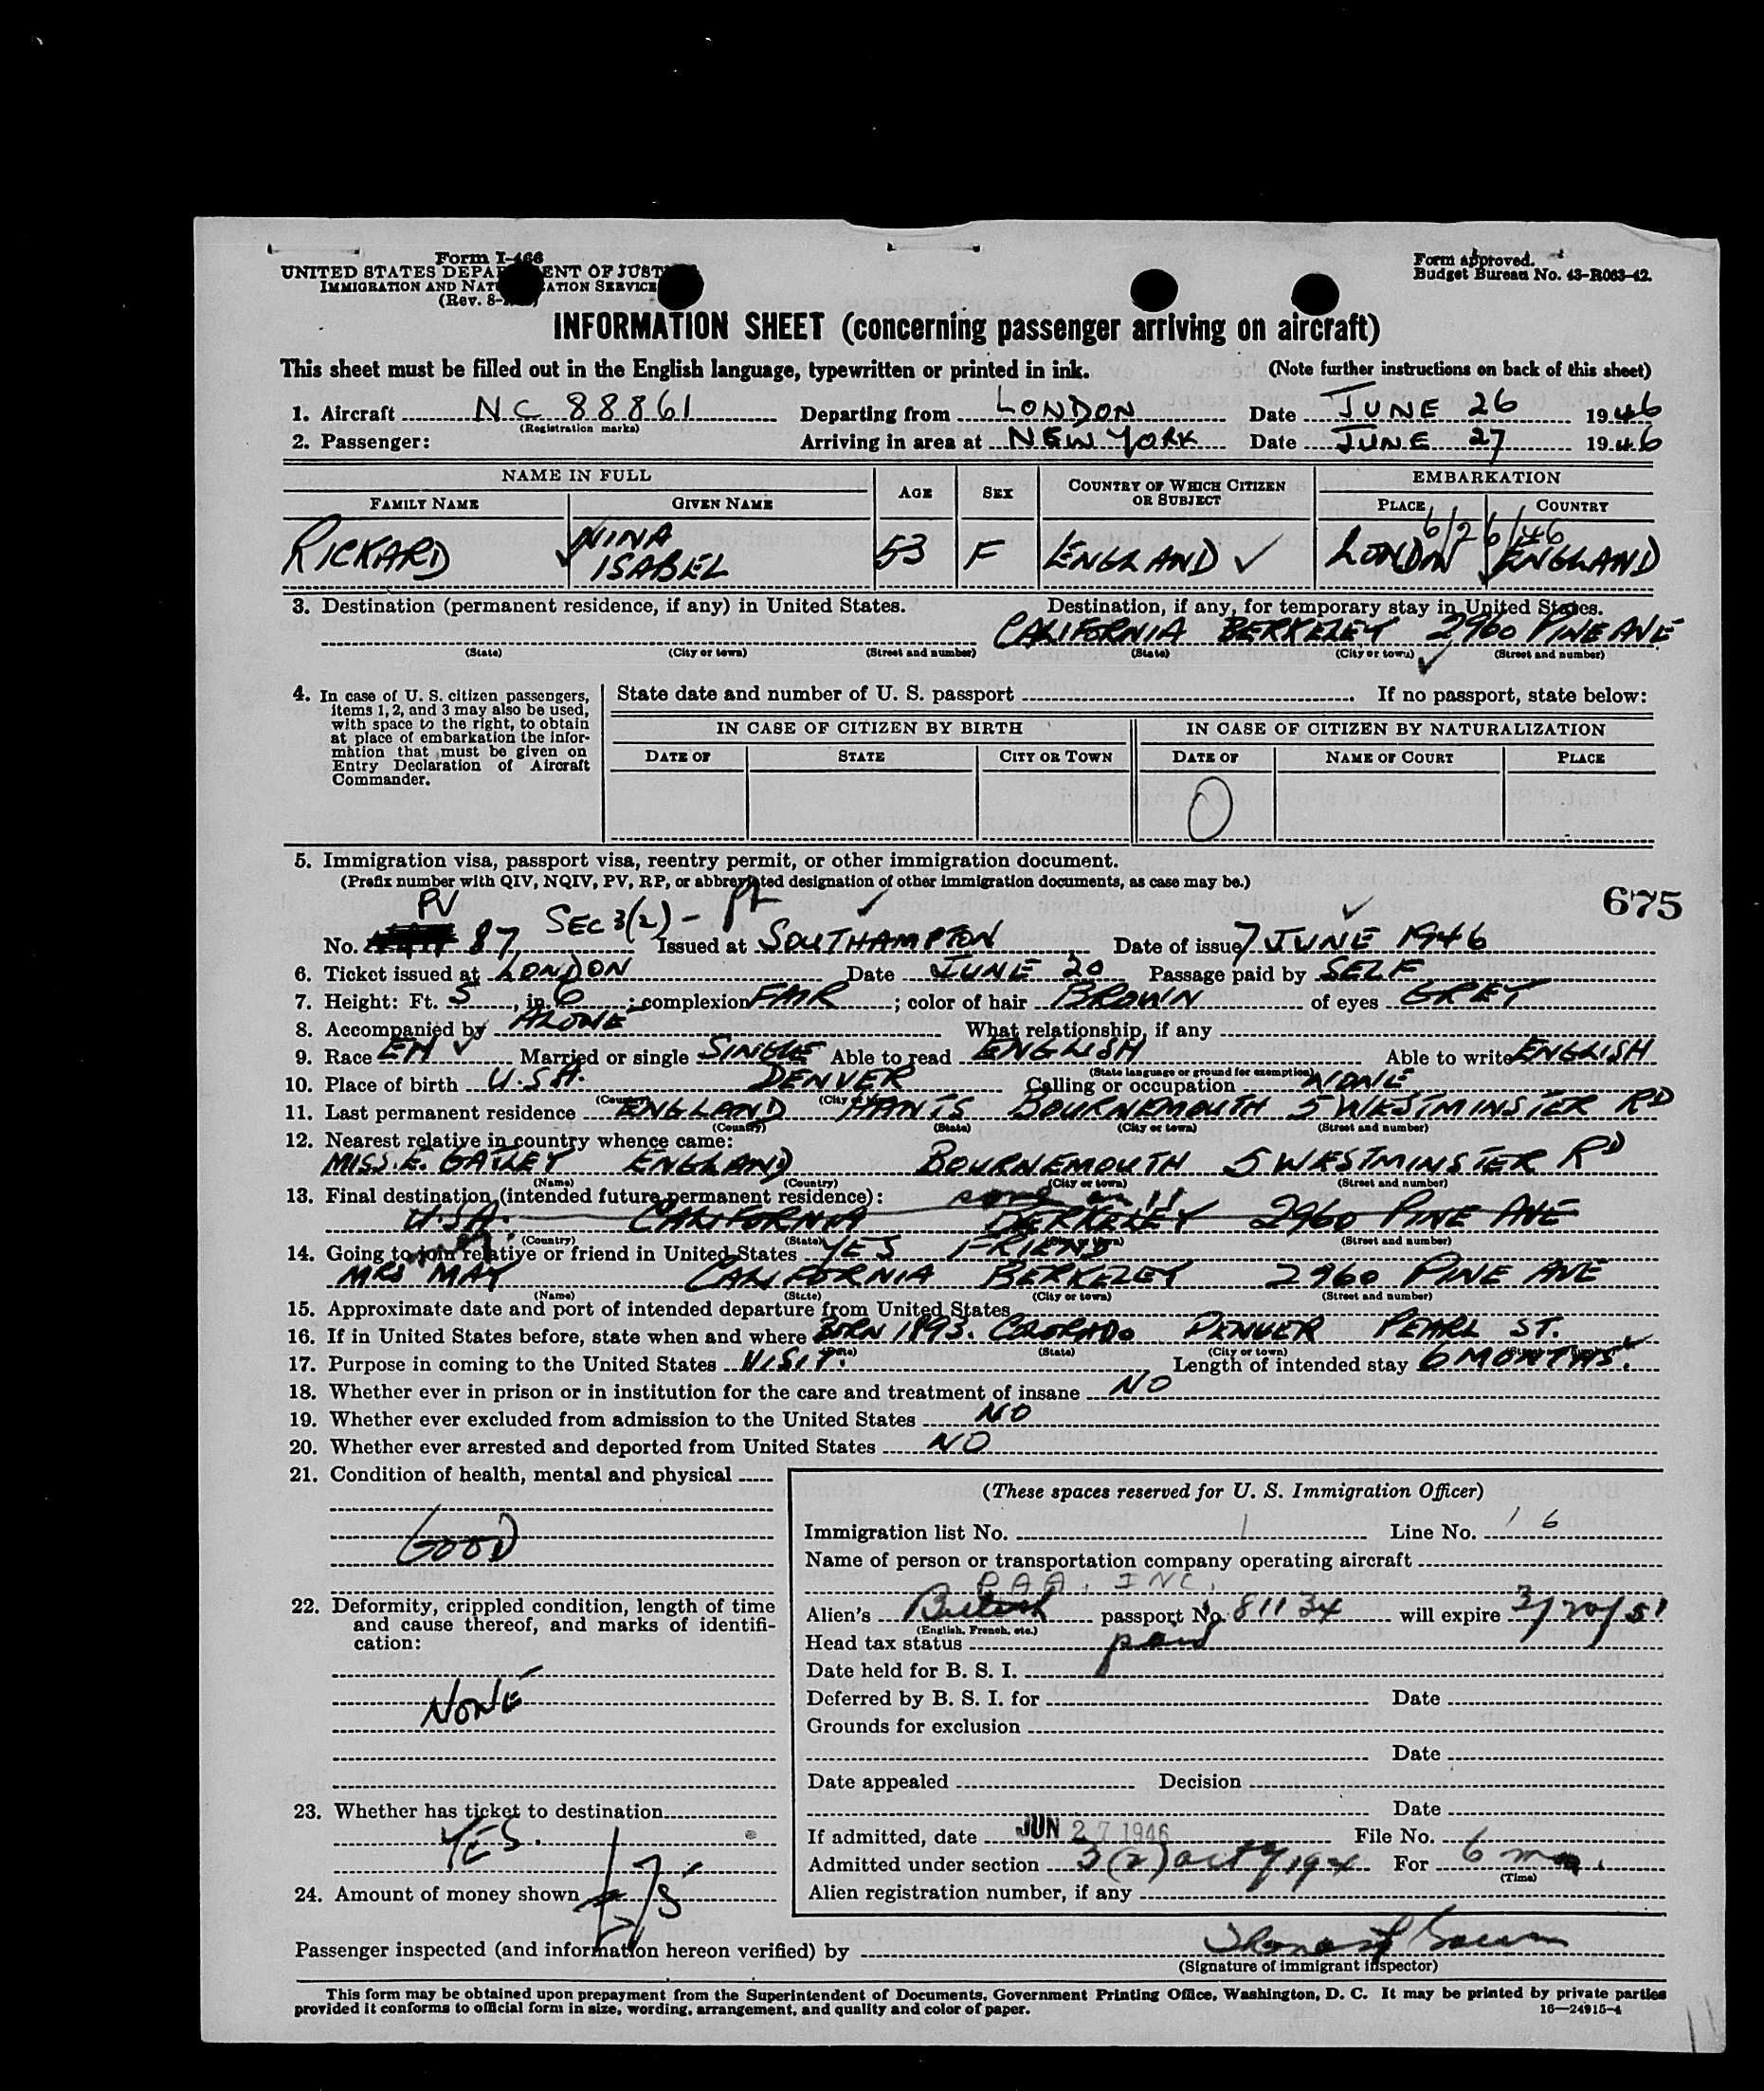 Form I-466
UNITED STATES DEPA ENT OF JUST
IMMIGRATION AND NAT ATION SERVICE
(Rev. 8-
Form approved.
Budget Bureau No. 43-R063-42.
INFORMATION SHEET (concerning passenger arriving on aircraft)
This sheet must be filled out in the English language, typewritten or printed in ink. (Note further instructions on back of this sheet)
1. Aircraft NC 88861 Departing from LONDON Date JUNE 26 1946
(Registration marks)
2. Passenger: Arriving in area at NEW YORK Date JUNE 27 1946
NAME IN FULL AGE SEX COUNTRY OF WHICH CITIZEN OR SUBJECT EMBARKATION
FAMILY NAME GIVEN NAME PLACE COUNTRY
6/26/46
RICKARD NINA ISABEL 53 F ENGLAND LONDON ENGLAND
3. Destination (permanent residence, if any) in United States. Destination, if any, for temporary stay in United States.
CALIFORNIA BERKELEY 2960 PINE AVE
(State) (City or town) (Street and number) (State) (City or town) (Street and number)
4. In case of U. S. citizen passengers, items 1, 2, and 3 may also be used, with space to the right, to obtain at place of embarkation the information that must be given on Entry Declaration of Aircraft Commander.
State date and number of U. S. passport If no passport, state below:
IN CASE OF CITIZEN BY BIRTH IN CASE OF CITIZEN BY NATURALIZATION
DATE OF STATE CITY OR TOWN DATE OF NAME OF COURT PLACE
0
5. Immigration visa, passport visa, reentry permit, or other immigration document.
(Prefix number with QIV, NQIV, PV, RP, or abbreviated designation of other immigration documents, as case may be.)
675
PV SEC 3(2) -
No. 87 Issued at SOUTHAMPTON Date of issue 7 JUNE 1946
6. Ticket issued at LONDON Date JUNE 20 Passage paid by SELF
7. Height: Ft. 5, in. 6; complexion FAIR; color of hair BROWN of eyes GREY
8. Accompanied by ALONE What relationship, if any
9. Race EN Married or single SINGLE Able to read ENGLISH Able to write ENGLISH
(State language or ground for exemption)
10. Place of birth U.S.A. DENVER Calling or occupation NONE
(Country) (City or town)
11. Last permanent residence ENGLAND HANTS BOURNEMOUTH 5 WESTMINSTER RD
(Country) (State) (City or town) (Street and number)
12. Nearest relative in country whence came:
MISS. E. GATLEY ENGLAND BOURNEMOUTH 5 WESTMINSTER RD
(Name) (Country) (City or town) (Street and number)
13. Final destination (intended future permanent residence): same as 11
U.S.A. CALIFORNIA BERKELEY 2960 PINE AVE
(Country) (State) (City or town) (Street and number)
14. Going to join relative or friend in United States YES FRIEND
MRS MAY CALIFORNIA BERKELEY 2960 PINE AVE
(Name) (State) (City or town) (Street and number)
15. Approximate date and port of intended departure from United States
16. If in United States before, state when and where BORN 1893. COLORADO DENVER PEARL ST.
(Date) (State) (City or town) (Street and number)
17. Purpose in coming to the United States VISIT. Length of intended stay 6 MONTHS.
18. Whether ever in prison or in institution for the care and treatment of insane NO
19. Whether ever excluded from admission to the United States NO
20. Whether ever arrested and deported from United States NO
21. Condition of health, mental and physical
GOOD
22. Deformity, crippled condition, length of time and cause thereof, and marks of identification:
NONE
23. Whether has ticket to destination
YES.
24. Amount of money shown £75
(These spaces reserved for U. S. Immigration Officer)
Immigration list No. 1 Line No. 16
Name of person or transportation company operating aircraft
PAA. INC.
Alien's British passport No. 81134 will expire 3/20/51
(English, French, etc.)
Head tax status paid
Date held for B. S. I.
Deferred by B. S. I. for Date
Grounds for exclusion
Date
Date appealed Decision
Date
If admitted, date JUN 27 1946 File No.
Admitted under section 3(2) act of 1924 For 6 mos.
(Time)
Alien registration number, if any
Passenger inspected (and information hereon verified) by
(Signature of immigrant inspector)
This form may be obtained upon prepayment from the Superintendent of Documents, Government Printing Office, Washington, D. C. It may be printed by private parties
provided it conforms to official form in size, wording, arrangement, and quality and color of paper. 16—24915-4